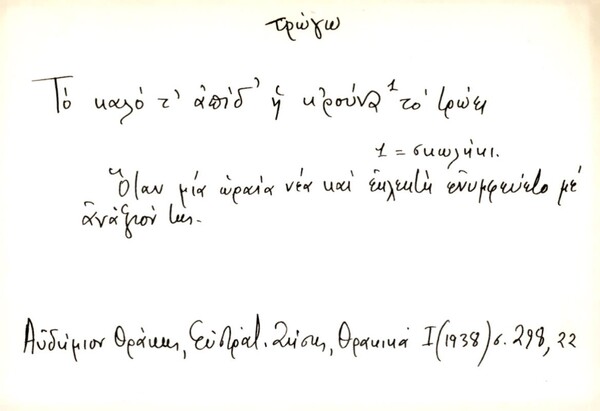 τρώγω
Τό καλό τ' ἀπίδ' ἡ κ'ρούνα¹ τό τρώει
1 = σκωλήκι.
Ὅταν μία ὡραία νέα καί ἐκλεκτή ἐνυμφεύετο μέ
ἀνάξιόν της.
Αὐδήμιον Θράκης, Εὐστρατ. Ζήσης, Θρακικά I (1938) σ. 298, 22